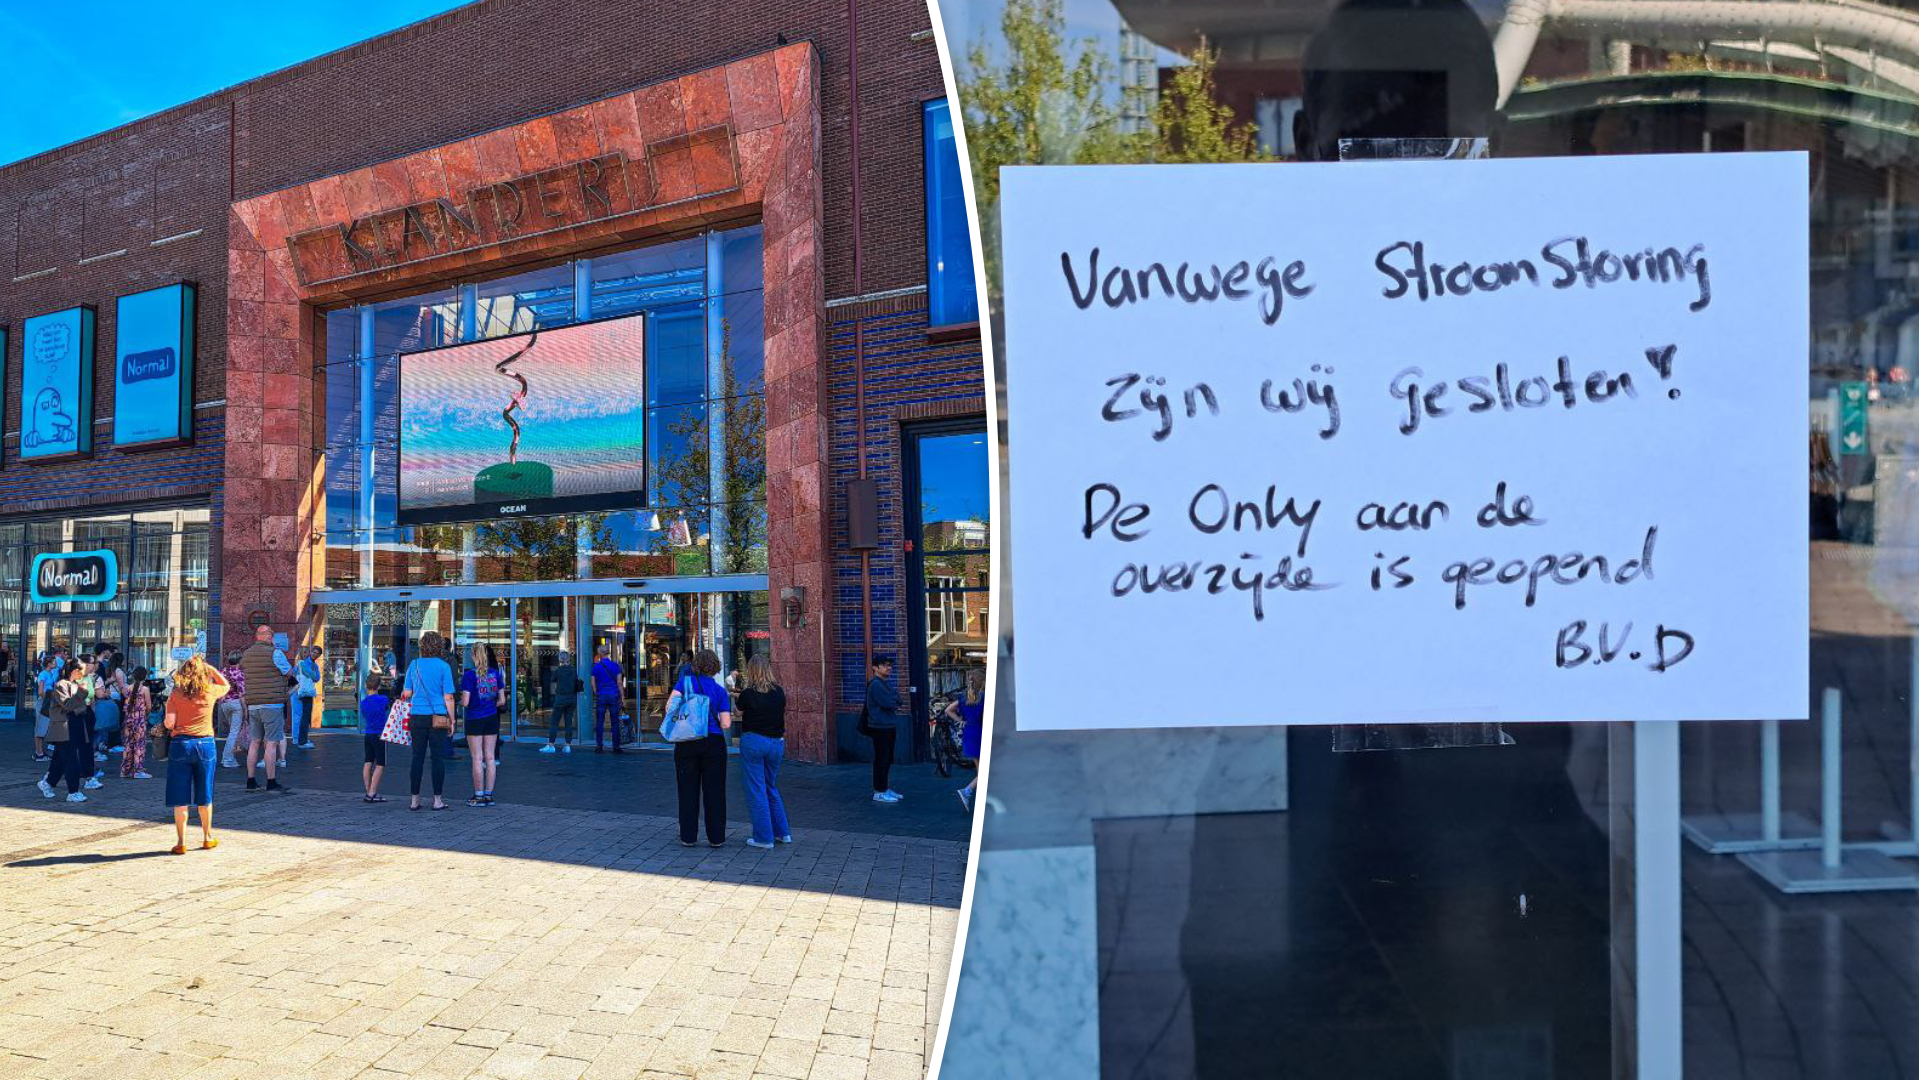 KLANDERIJ
Normal
OCEAN
Normal
ONLY
Vanwege Stroom Storing
Zijn wij gesloten!
De Only aan de
overzijde is geopend
B.V.D